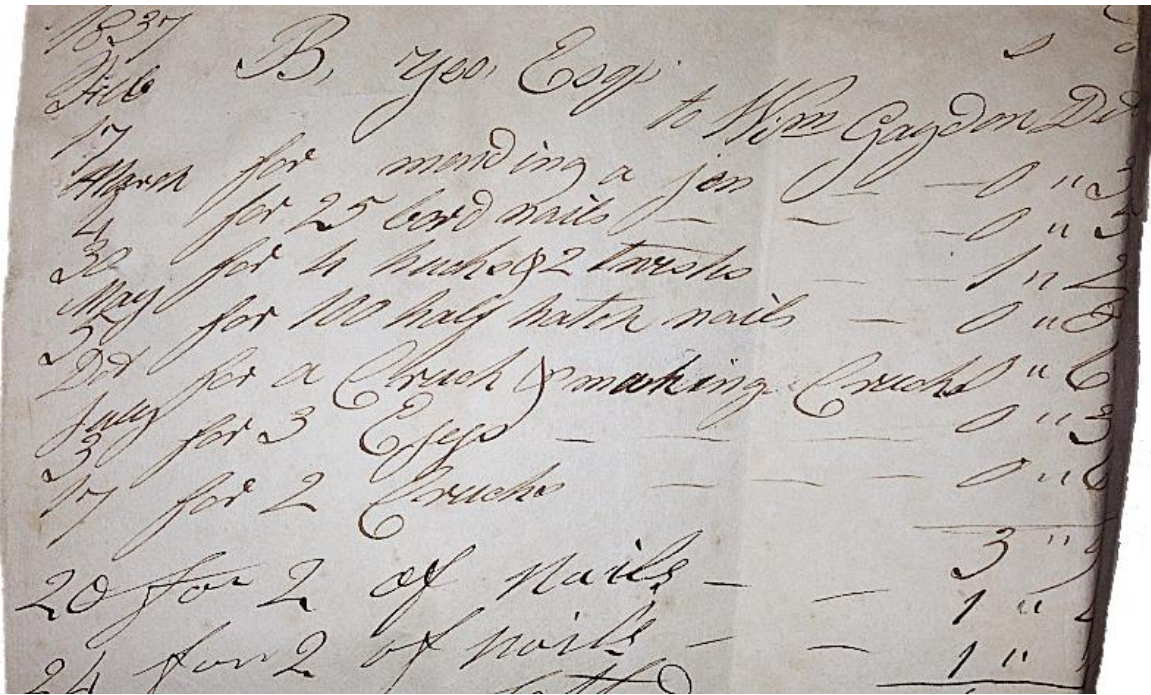 1837
Feb B, Yeo, Esqr s
17 to Wm Gaydon Dr
March for mending a jen 0 " 3
4 for 25 bord nails 0 " 3
30 for 4 hucks & 2 twists 1 " 2
May for 100 half hatch nails 0 " 8
5 for a Cruck & making Crucks 0 " 6
July for 3 Eyes 0 " 3
3
17 for 2 Crucks 0 " 6
3 "
20 for 2 of Nails 1 "
for 2 of nails 1 "
24